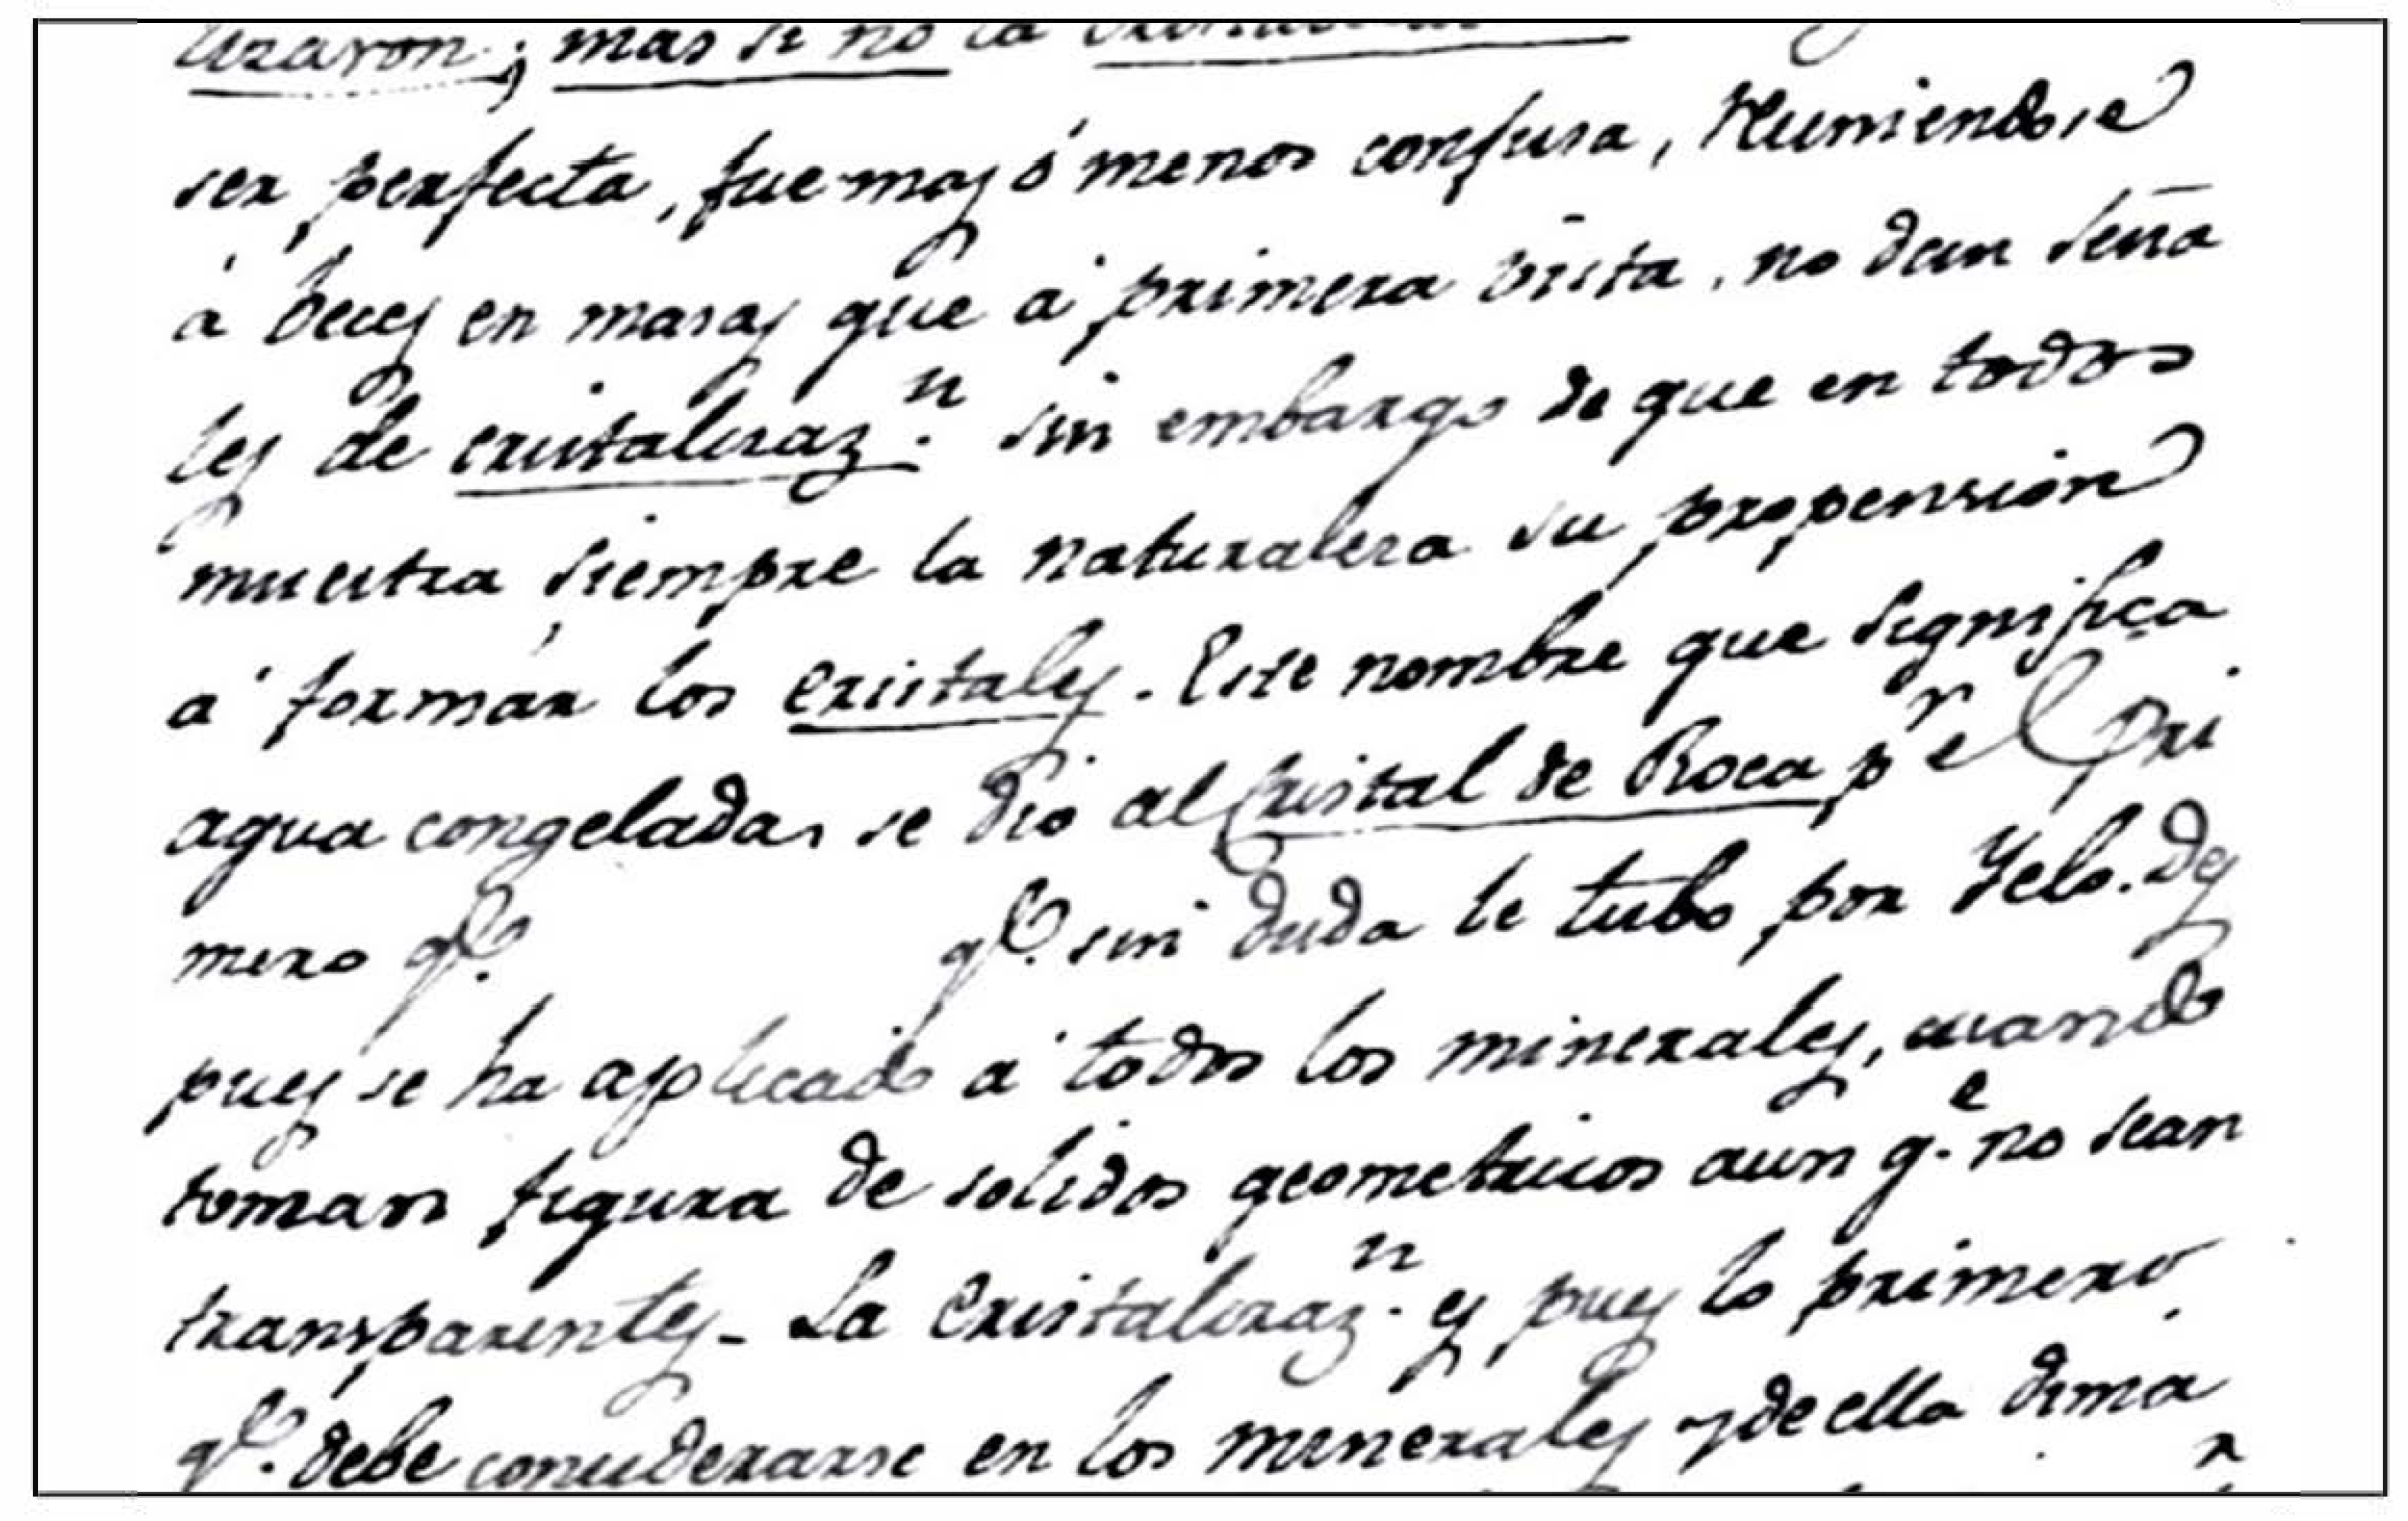 lizaron; mas si no la
ser perfecta, fue mas ó menos confusa, reuniendose
á veces en masas que á primera vista, no dan seña
les de cristalizaz.n sin embargo de que en todos
muestra siempre la naturaleza su propension
á formar los cristales. Este nombre que significa
agua congelada, se dio al Cristal de Roca p.r el Pri
mero q.e q.e sin duda le tubo por Yelo. Des
pues se ha aplicado á todos los minerales, cuando
toman figura de solidos geometricos aun q.e no sean
transparentes - La Cristalizaz.n es pues lo primero
q.e debe considerarse en los minerales y de ella dima